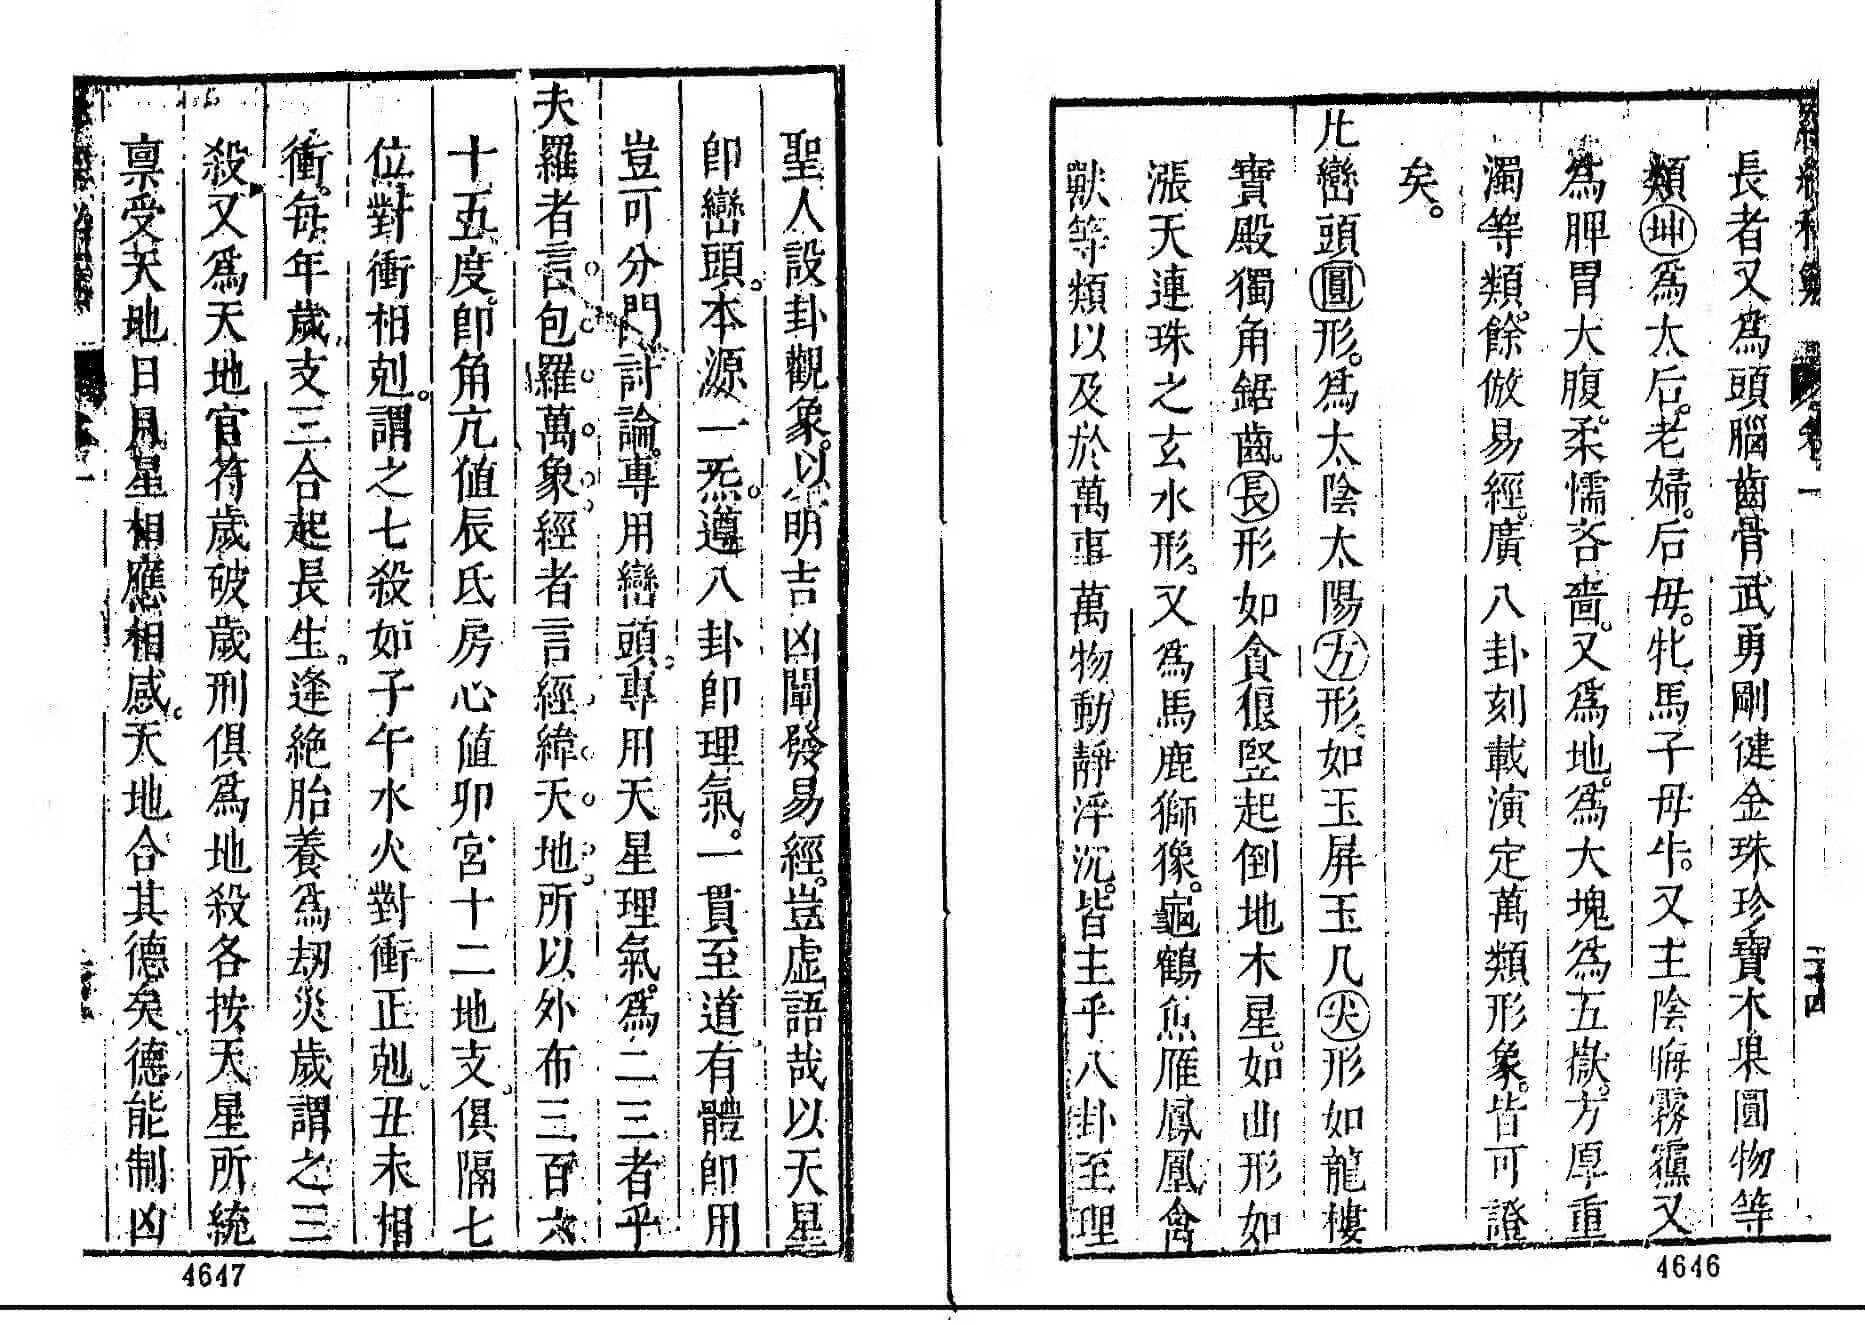 長者又為頭腦齒骨武勇剛健金珠珍寶木果圓物等
類坤為太后。老婦。后母。牝馬子母牛。又主陰晦霧靄又
為脾胃大腹。柔懦吝嗇。又為地。為大塊為五嶽。方厚重
濁等類。餘倣易經。廣八卦刻載演定萬類形象。皆可證
矣。
凡巒頭圓形。為太陰太陽方形。如玉屏玉几尖形如龍樓
寶殿獨角鋸齒。長形如貪狼竪起倒地木星。如曲形如
漲天連珠之玄水形。又為馬鹿獅像。龜鶴魚雁鳳凰禽
獸等類以及於萬事萬物動靜浮沉。皆主乎八卦至理
4646
聖人設卦觀象。以明吉凶闡發易經。豈虛語哉以天星
卽巒頭。本源一炁。遵八卦卽理氣。一貫至道有體卽用
豈可分門討論。專用巒頭。專用天星理氣。為二三者乎
夫羅者言包羅萬象。經者言經緯天地。所以外布三百六
十五度。卽角亢値辰氐房心値卯宮十二地支。俱隔七
位對衝相剋。謂之七殺如子午水火對衝正剋。丑未相
衝。每年歲支三合起長生。逢絶胎養為刼災歲謂之三
殺。又為天地官符歲破歲刑俱為地殺各按天星所統
稟受天地日月星相應相感。天地合其德矣。德能制凶
4647